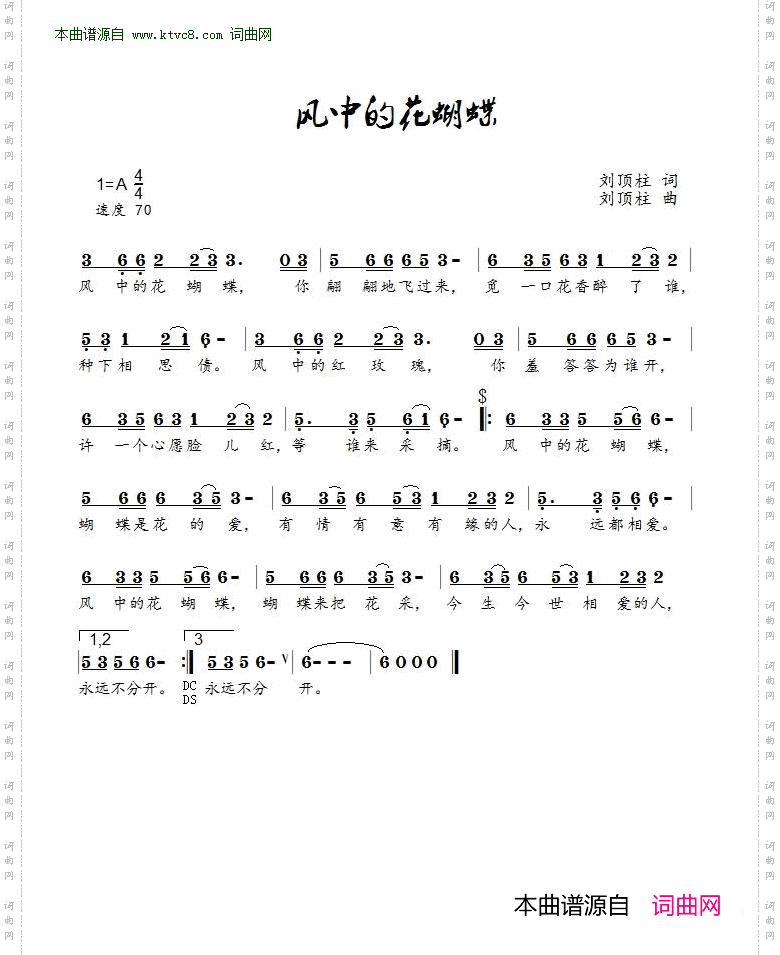 本曲谱源自 www.ktvc8.com 词曲网
风中的花蝴蝶
1=A 4/4
刘顶柱 词
速度 70
刘顶柱 曲
3 6 6 2 2 2 3 3. 0 3 | 5 6 6 6 5 3 - | 6 3 5 6 3 1 2 3 2 |
风 中的花 蝴 蝶, 你 翩 翩地飞过来, 觅 一口花香醉 了 谁,
5 3 1 2 1 6 - | 3 6 6 2 2 3 3. 0 3 | 5 6 6 6 5 3 - |
种下相 思 债。 风 中的红 玫 瑰, 你 羞 答答为谁开,
$
6 3 5 6 3 1 2 3 2 | 5. 3 5 6 1 6 - ‖: 6 3 3 5 5 6 6 - |
许 一个心愿脸 儿 红,等 谁来 采 摘。 风 中的花 蝴 蝶,
5 6 6 6 3 5 3 - | 6 3 5 6 5 3 1 2 3 2 | 5. 3 5 6 6 - |
蝴 蝶是花 的 爱, 有 情 有 意 有 缘的人,永 远都相爱。
6 3 3 5 5 6 6 - | 5 6 6 6 3 5 3 - | 6 3 5 6 5 3 1 2 3 2
风 中的花 蝴 蝶, 蝴 蝶来把 花 采, 今 生 今 世 相 爱的人,
1,2 3
5 3 5 6 6 - :‖ 5 3 5 6 - V | 6 - - - | 6 0 0 0 ‖
永远不分开。 DC 永远不分 开。
DS
本曲谱源自 词曲网